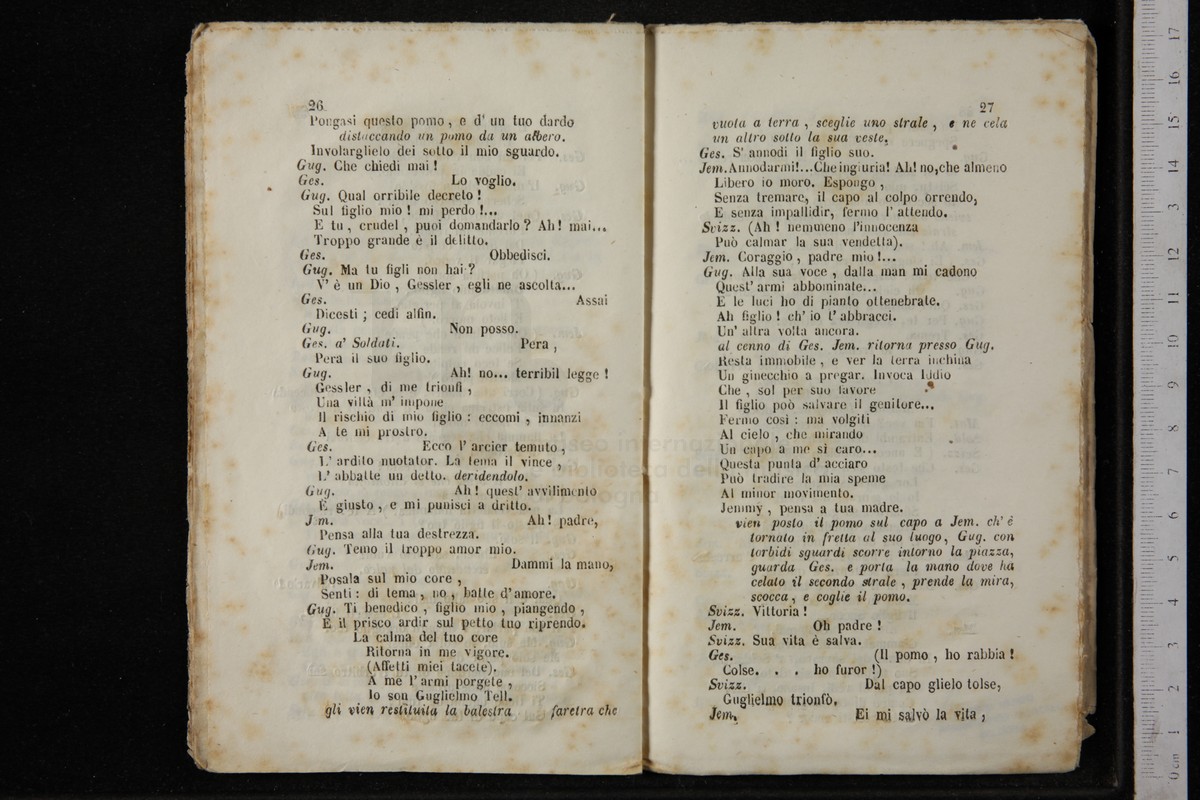 26
Pongasi questo pomo, e d' un tuo dardo
distaccando un pomo da un albero.
Involarglielo dei sotto il mio sguardo.
Gug. Che chiedi mai!
Ges. Lo voglio.
Gug. Qual orribile decreto!
Sul figlio mio! mi perdo!...
E tu, crudel, puoi domandarlo? Ah! mai...
Troppo grande è il delitto.
Ges. Obbedisci.
Gug. Ma tu figli non hai?
V' è un Dio, Gessler, egli ne ascolta...
Ges. Assai
Dicesti; cedi alfin.
Gug. Non posso.
Ges. a' Soldati. Pera,
Pera il suo figlio.
Gug. Ah! no... terribil legge!
Gessler, di me trionfi,
Una viltà m' impone
Il rischio di mio figlio: eccomi, innanzi
A te mi prostro.
Ges. Ecco l' arcier temuto,
L' ardito nuotator. La tema il vince,
L' abbatte un detto. deridendolo.
Gug. Ah! quest' avvilimento
È giusto, e mi punisci a dritto.
Jem. Ah! padre,
Pensa alla tua destrezza.
Gug. Temo il troppo amor mio.
Jem. Dammi la mano,
Posala sul mio core,
Senti: di tema, no, batte d'amore.
Gug. Ti benedico, figlio mio, piangendo,
E il prisco ardir sul petto tuo riprendo.
La calma del tuo core
Ritorna in me vigore.
(Affetti miei tacete).
A me l' armi porgete,
Io son Guglielmo Tell.
gli vien restituita la balestra faretra che
27
vuota a terra, sceglie uno strale, e ne cela
un altro sotto la sua veste.
Ges. S' annodi il figlio suo.
Jem. Annodarmi!...Che ingiuria! Ah! no, che almeno
Libero io moro. Espongo,
Senza tremare, il capo al colpo orrendo,
E senza impallidir, fermo l' attendo.
Svizz. (Ah! nemmeno l'innocenza
Può calmar la sua vendetta).
Jem. Coraggio, padre mio!...
Gug. Alla sua voce, dalla man mi cadono
Quest' armi abbominate...
E le luci ho di pianto ottenebrate.
Ah figlio! ch' io t' abbracci.
Un' altra volta ancora.
al cenno di Ges. Jem. ritorna presso Gug.
Resta immobile, e ver la terra inchina
Un ginecchio a pregar. Invoca Iddio
Che, sol per suo favore
Il figlio può salvare il genitore...
Fermo così: ma volgiti
Al cielo, che mirando
Un capo a me sì caro...
Questa punta d' acciaro
Può tradire la mia speme
Al minor movimento.
Jemmy, pensa a tua madre.
vien posto il pomo sul capo a Jem. ch' è
tornato in fretta al suo luogo, Gug. con
torbidi sguardi scorre intorno la piazza,
guarda Ges. e porta la mano dove ha
celato il secondo strale, prende la mira,
scocca, e coglie il pomo.
Svizz. Vittoria!
Jem. Oh padre!
Svizz. Sua vita è salva.
Ges. (Il pomo, ho rabbia!
Colse. . . ho furor!)
Svizz. Dal capo glielo tolse,
Guglielmo trionfò.
Jem. Ei mi salvò la vita,